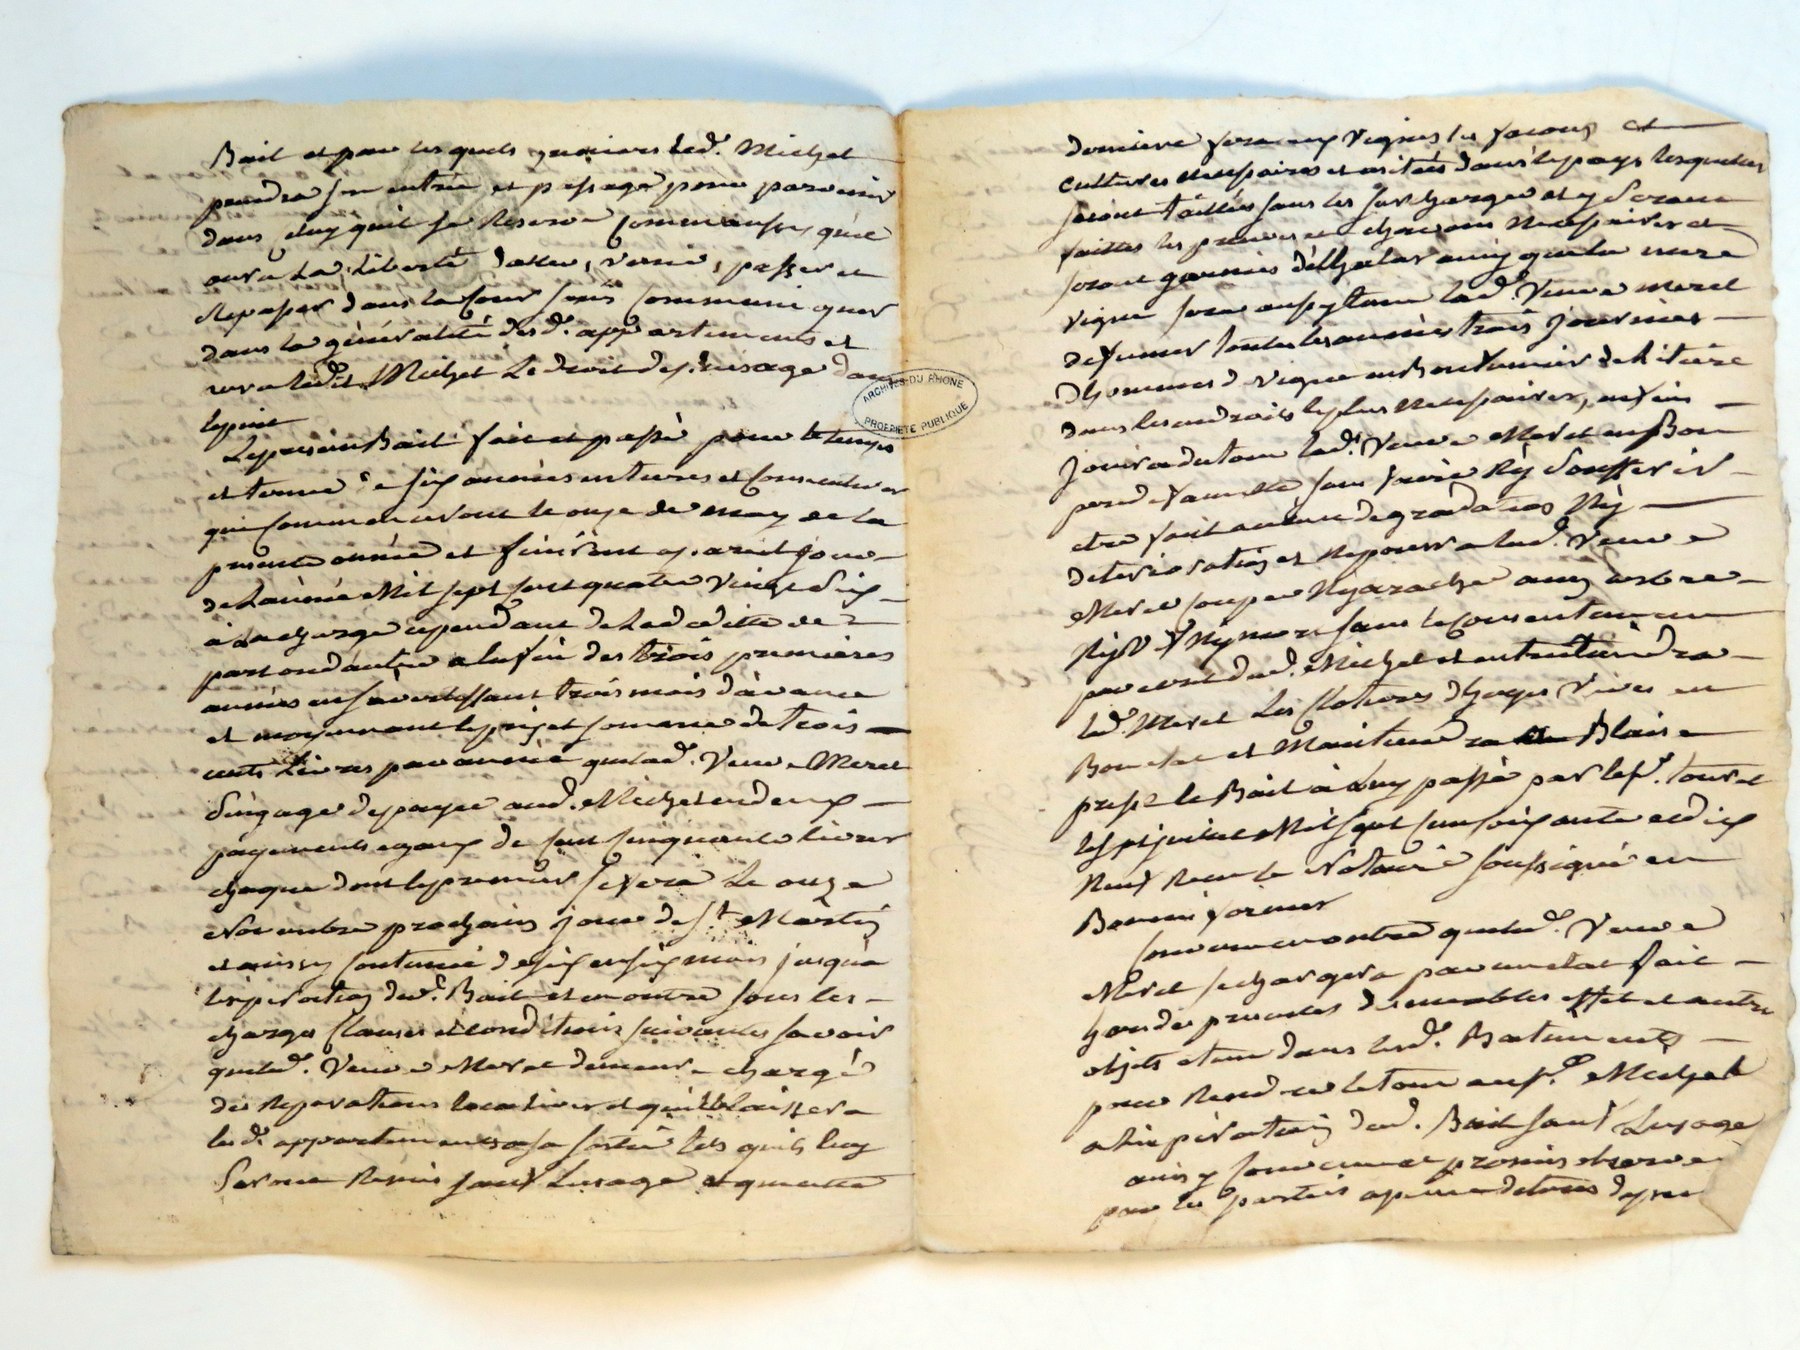 Bail et par les quels greniers led. Michel
prendra son entrée et passage pour parvenir
dans celuy quil se Reserve comme aussy quil
aura La Liberté daller, venir, passer et
Repasser dans la Cour sans communiquer
dans la généralité desd. appartements et
aura ledit Michel Le droit de puisage dans
le puit
ARCHIVES DU RHONE
PROPRIETE PUBLIQUE
Le present Bail fait et passé pour le temps
et terme de six années entieres et Consecutives
qui Commenceront le onze de may de la
presente année et finiront a pareil jour
de Lannée Mil sept cent quatre vingt dix
a La charge cependant de Leddite de
part ou dautre a la fin des trois premieres
années en savertissant trois mois davance
et moyennant le prix et somme de trois
cents Livres par année que lad. Veuve Meret
sengage de payer aud. Michel en deux
payements egaux de cent cinquante livres
chaque dont le premier se fera Le onze
Novembre prochain jour de St. Martin
et ainsy Continué de six en six mois jusqua
lexpiration dud. Bail et en outre sous les
charges Clauses et Conditions suivantes savoir
que lad. Veuve Meret demeure chargé
des Reparations locatives et quelle laissera
lesd. appartements a sa sortie tels quils luy
seront Remis sauf Lusage et quant a
derniere fera aux vignes les facons et
cultures necessaires et usitées dans le pays lesquelles
seront taillées sans les surcharger et y seront
faittes les necessaires et
seront garnies dEchalas ainsy que la
vigne sera aussy tenue lad. Veuve Meret
de fumer toutes les années trois journées
dhommes de vigne en Bon fumier de litière
dans les endroits les plus necessaires, enfin
jouira du tout lad. Veuve Meret en Bon
pere de famille sans faire Ny souffrir
etre fait aucune degradation Ny
deterioration et ne pourra lad. Veuve
Meret couper Ny arracher aucun arbre
Ny vif Ny mort sans le Consentement
par ecrit dud. Michel et entretiendra
lad. Meret Les Clotures dhayes vives en
Bon etat et Maintiendra Blaise
le Bail a Luy passé par le sr.
juillet Mil sept cent soixante et dix
Neuf Recu le Notaire soussigné en
Bonne forme
Convenu en outre que lad. Veuve
Meret se chargera par un etat fait
des meubles Effet et autres
objets etant dans lesd. Batiments
pour Rendre le tout aud. Michel
a lexpiration dud. Bail sauf Lusage
ainsy Convenu et promis observer
par les parties a peine de tous depens